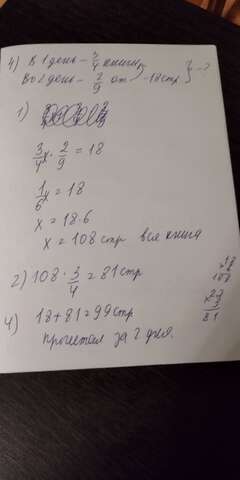 4) В 1 день - 3/4 книги
Во 2 день - 2/9 от - 18 стр } - ?
1)
3/4x · 2/9 = 18
1/6x = 18
x = 18·6
x = 108 стр вся книга
2) 108 · 3/4 = 81 стр
4) 18+81=99 стр
прочитал за 2 дня.
x 27
3
81